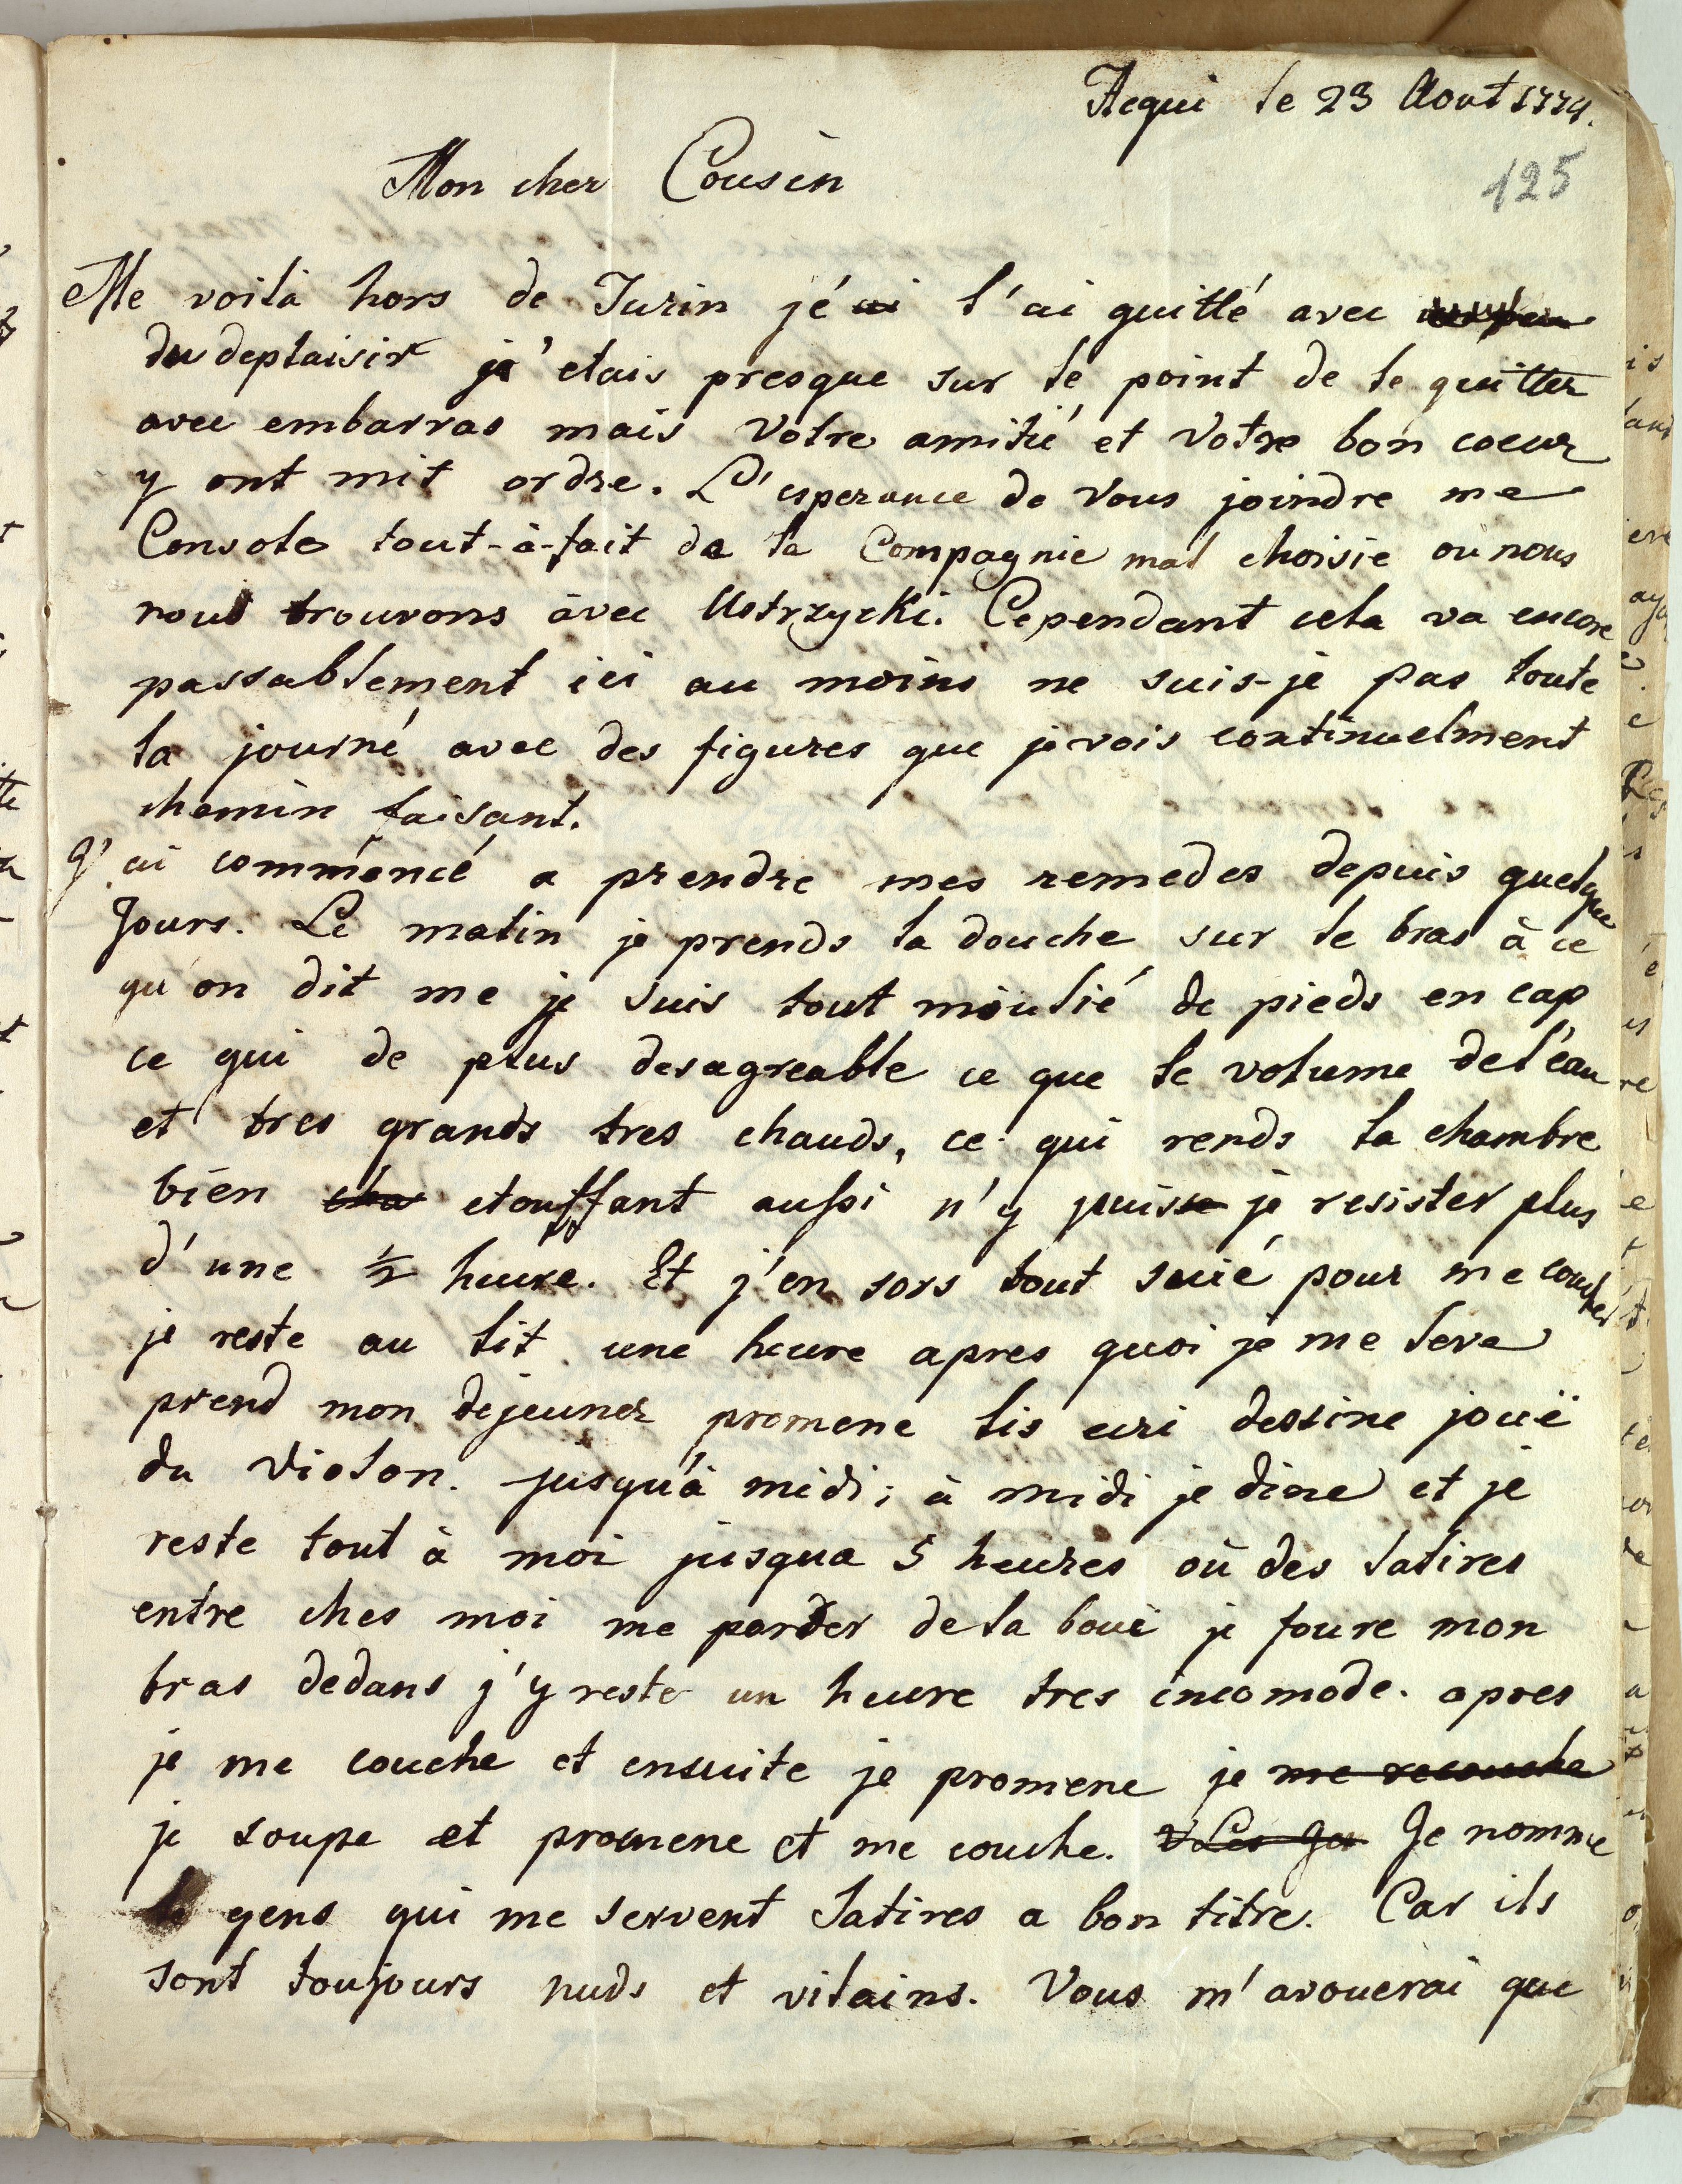 Acqui le 23 Aout 1779.
125
Mon cher Cousin
Me voilà hors de Turin jé ai l'ai quitté avec
du deplaisir je' etais presque sur le point de le quitter
avec embarras mais votre amitié et votre bon coeur
y ont mit ordre. L'esperance de vous joindre me
Console tout-à-fait de la Compagnie mal choisie ou nous
nous trouvons àvec Ustrzycki. Cependant cela va encore
passablement ici au moins ne suis-je pas toute
la journé avec des figures que je vois continuelment
chemin faisant.
J'ai commencé a prendre mes remedes depuis quelque
Jours. Le matin je prends la douche sur le bras à ce
qu'on dit me je suis tout moulié de pieds en cap
ce qui de plus desagreable ce que le volume de l'eau
et tres grands tres chauds, ce qui rends la chambre
bien cha etouffant aussi n'y puisse je resister plus
d'une 1/2 heure. Et j'en sors tout suié pour me coucher
je reste au lit une heure apres quoi je me leve
prend mon dejeuner promene lis ecri dessine jouë
du violon. jusqu'à midi; à midi je dine et je
reste tout à moi jusqua 5 heures où des Satires
entre ches moi me porder de la bouë je foure mon
bras dedans j'y reste un heure tres incomode. apres
je me couche et ensuite je promene je me recouche
je soupe et promene et me couche. Les Ge Je nomme
le gens qui me servent Satires a bon titre. Car ils
sont toujours nuds et vilains. Vous m'avouerai que